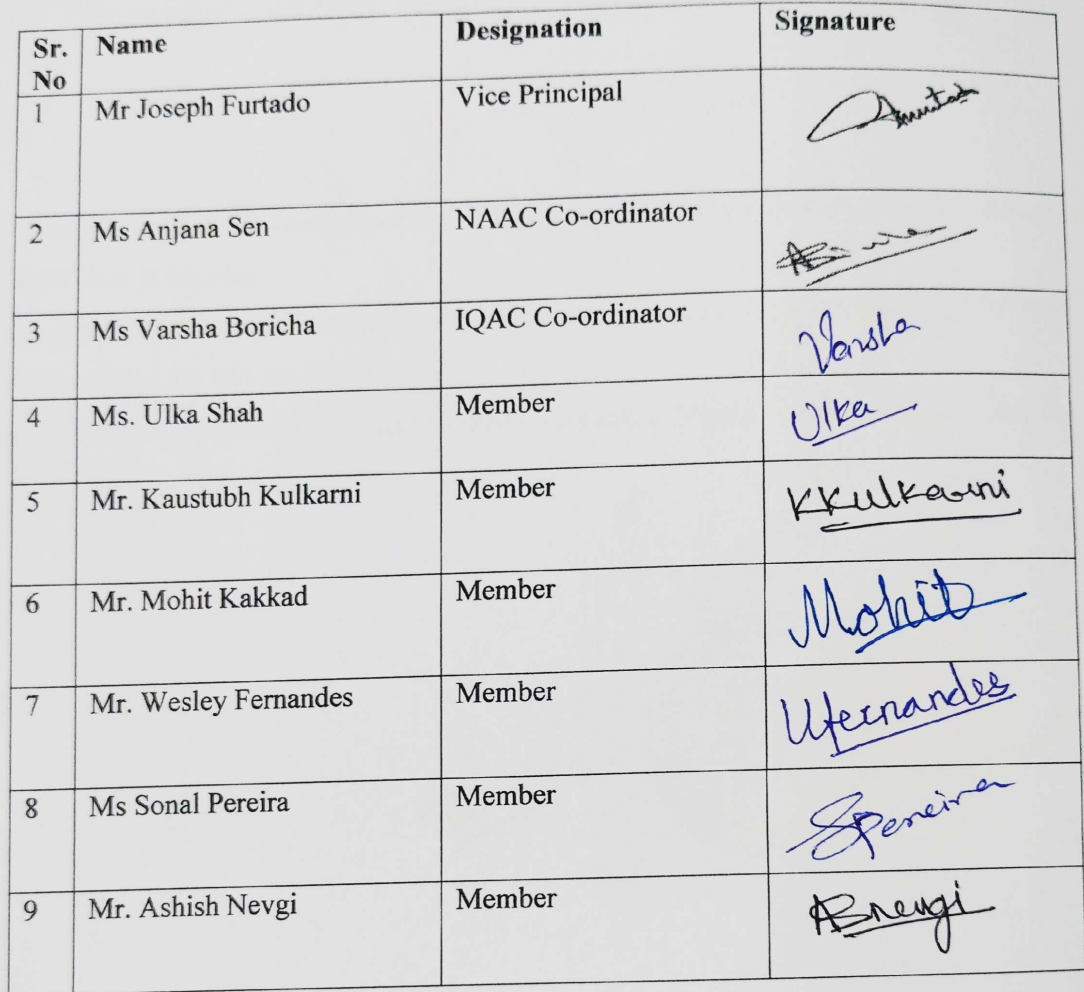 Sr. No Name Designation Signature
1 Mr Joseph Furtado Vice Principal
2 Ms Anjana Sen NAAC Co-ordinator
3 Ms Varsha Boricha IQAC Co-ordinator Varsha
4 Ms. Ulka Shah Member Ulka
5 Mr. Kaustubh Kulkarni Member KKulkarni
6 Mr. Mohit Kakkad Member Mohit
7 Mr. Wesley Fernandes Member Wfernandes
8 Ms Sonal Pereira Member SPereira
9 Mr. Ashish Nevgi Member ABnevgi